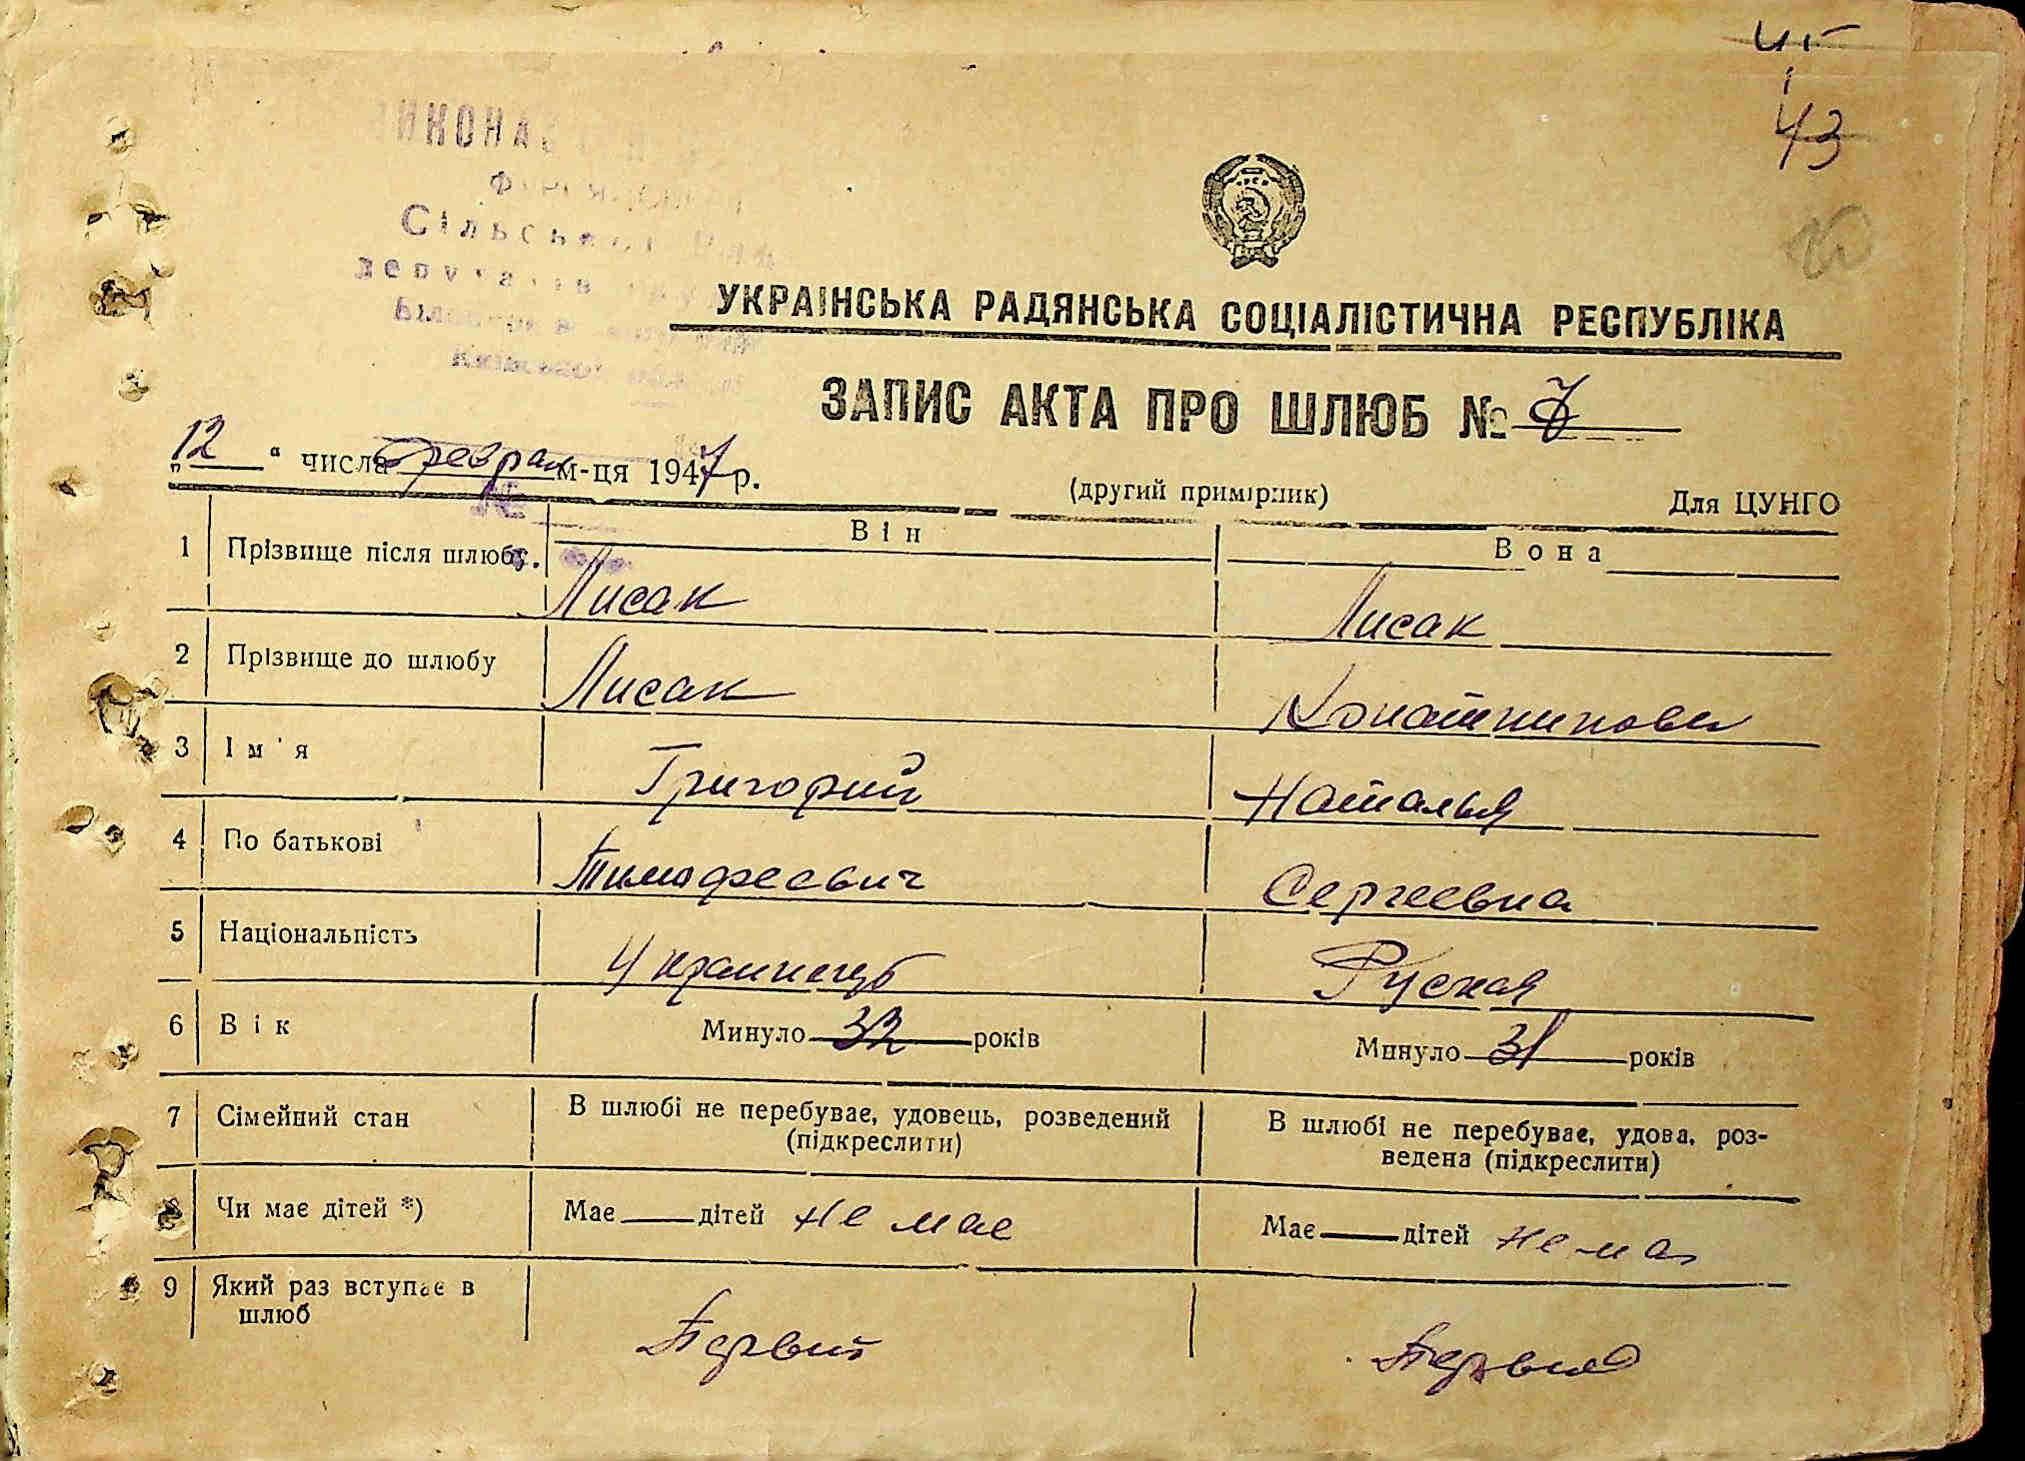 43
УКРАЇНСЬКА РАДЯНСЬКА СОЦІАЛІСТИЧНА РЕСПУБЛІКА
ЗАПИС АКТА ПРО ШЛЮБ № 7
„12“ числа феврал м-ця 1947 р.
(другий примірник) Для ЦУНГО
Він Вона
1 Прізвище після шлюбу. Лисак Лисак
2 Прізвище до шлюбу Лисак
3 Ім'я Григорий Наталья
4 По батькові Тимофеевич Сергеевна
5 Національність Украинець Руская
6 Вік Минуло 32 років Минуло 31 років
7 Сімейний стан В шлюбі не перебуває, удовець, розведений (підкреслити) В шлюбі не перебуває, удова, роз-
ведена (підкреслити)
8 Чи має дітей *) Має дітей не мае Має дітей не мае
9 Який раз вступає в
шлюб Первий Первий